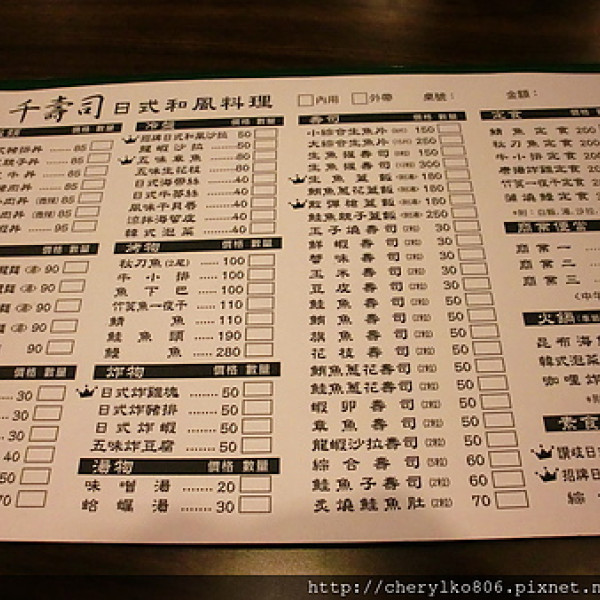 千壽司 日式和風料理
內用 外帶 桌號： 金額：
價格 數量
85
親子丼 85
牛丼 85
85
85
95
價格 數量
90
90
90
90
90
價格 數量
30
30
30
40
50
70
冷盤 價格 數量
招牌日式和風沙拉 50
龍蝦沙拉 50
五味章魚 80
五味生花枝 80
日式海帶絲 40
日式牛蒡絲 40
風味干貝唇 40
涼拌海蜇皮 40
韓式泡菜 40
烤物 價格 數量
秋刀魚(2尾) 100
牛小排 100
魚下巴 100
竹筴魚一夜干 110
鯖魚 110
鮭魚頭 190
鰻魚 280
炸物 價格 數量
日式炸雞塊 50
日式炸豬排 50
日式炸蝦 50
五味炸豆腐 50
湯物 價格 數量
味噌湯 20
蛤蠣湯 30
壽司 價格 數量
小綜合生魚片 150
大綜合生魚片 250
生魚握壽司 150
生魚握壽司 300
生魚蓋飯 180
鮪魚蔥花蓋飯 180
蝦彈槍蓋飯 180
鮭魚親子蓋飯 250
玉子燒壽司(2粒) 30
鮮蝦壽司(2粒) 30
蟹味壽司(2粒) 30
玉米壽司(2粒) 30
豆皮壽司(2粒) 30
鮭魚壽司(2粒) 50
鮪魚壽司(2粒) 50
旗魚壽司(2粒) 50
花枝壽司(2粒) 50
鮪魚蔥花壽司(2粒) 50
鮭魚蔥花壽司(2粒) 50
蝦卵壽司(2粒) 50
章魚壽司(2粒) 50
龍蝦沙拉壽司(2粒) 50
綜合壽司(5粒) 60
鮭魚子壽司(2粒) 60
炙燒鮭魚肚(2粒) 70
定食
鯖魚定食 200
秋刀魚定食 200
牛小排定食 200
唐揚炸雞定食
竹筴一夜干定食
蒲燒鰻定食
*附：白飯、湯、沙拉
商業便當
商業一
商業二
商業三
(中午
火鍋
昆布海
韓式泡菜
咖哩炸
*附
素食
讚岐日
招牌日
綜
http://cherylko806.pixnet.n